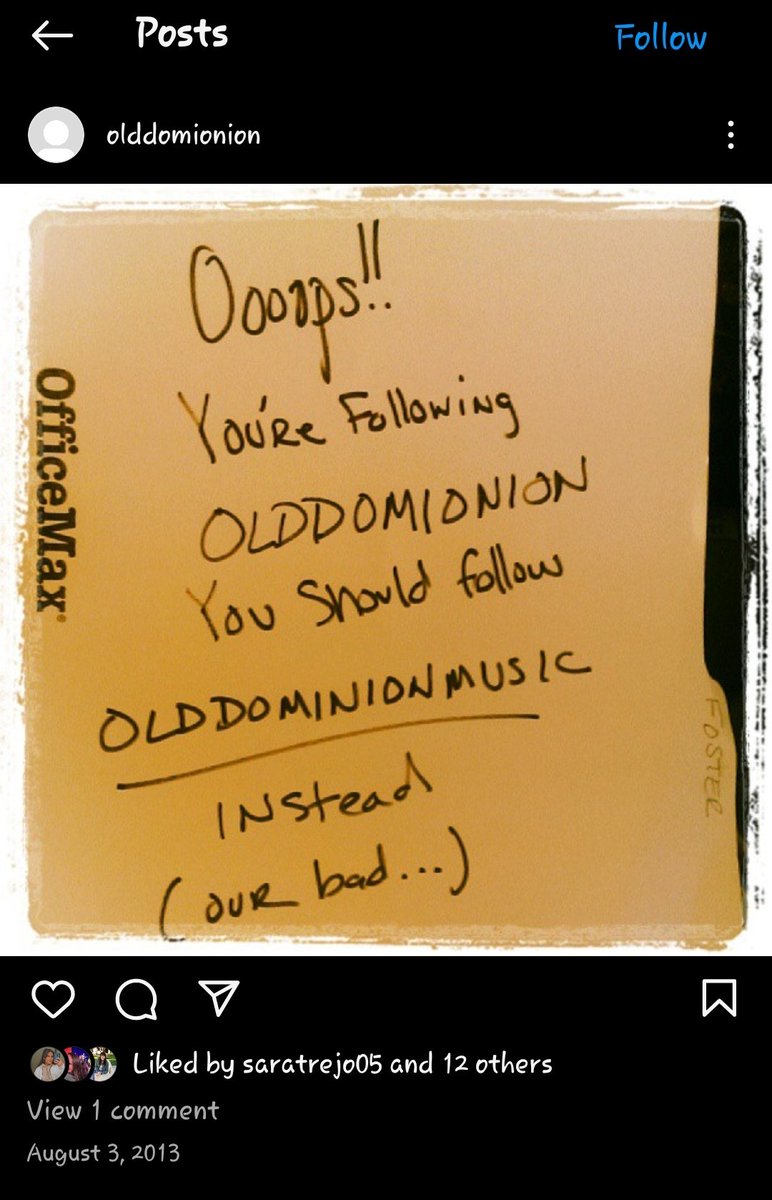 Posts
Follow
olddomionion
Ooopps!!
You're Following
OLDDOMIONION
You Should follow
OLDDOMINIONMUSIC
INStead
(OUR bad...)
OfficeMax®
FOSTER
Liked by saratrejo05 and 12 others
View 1 comment
August 3, 2013